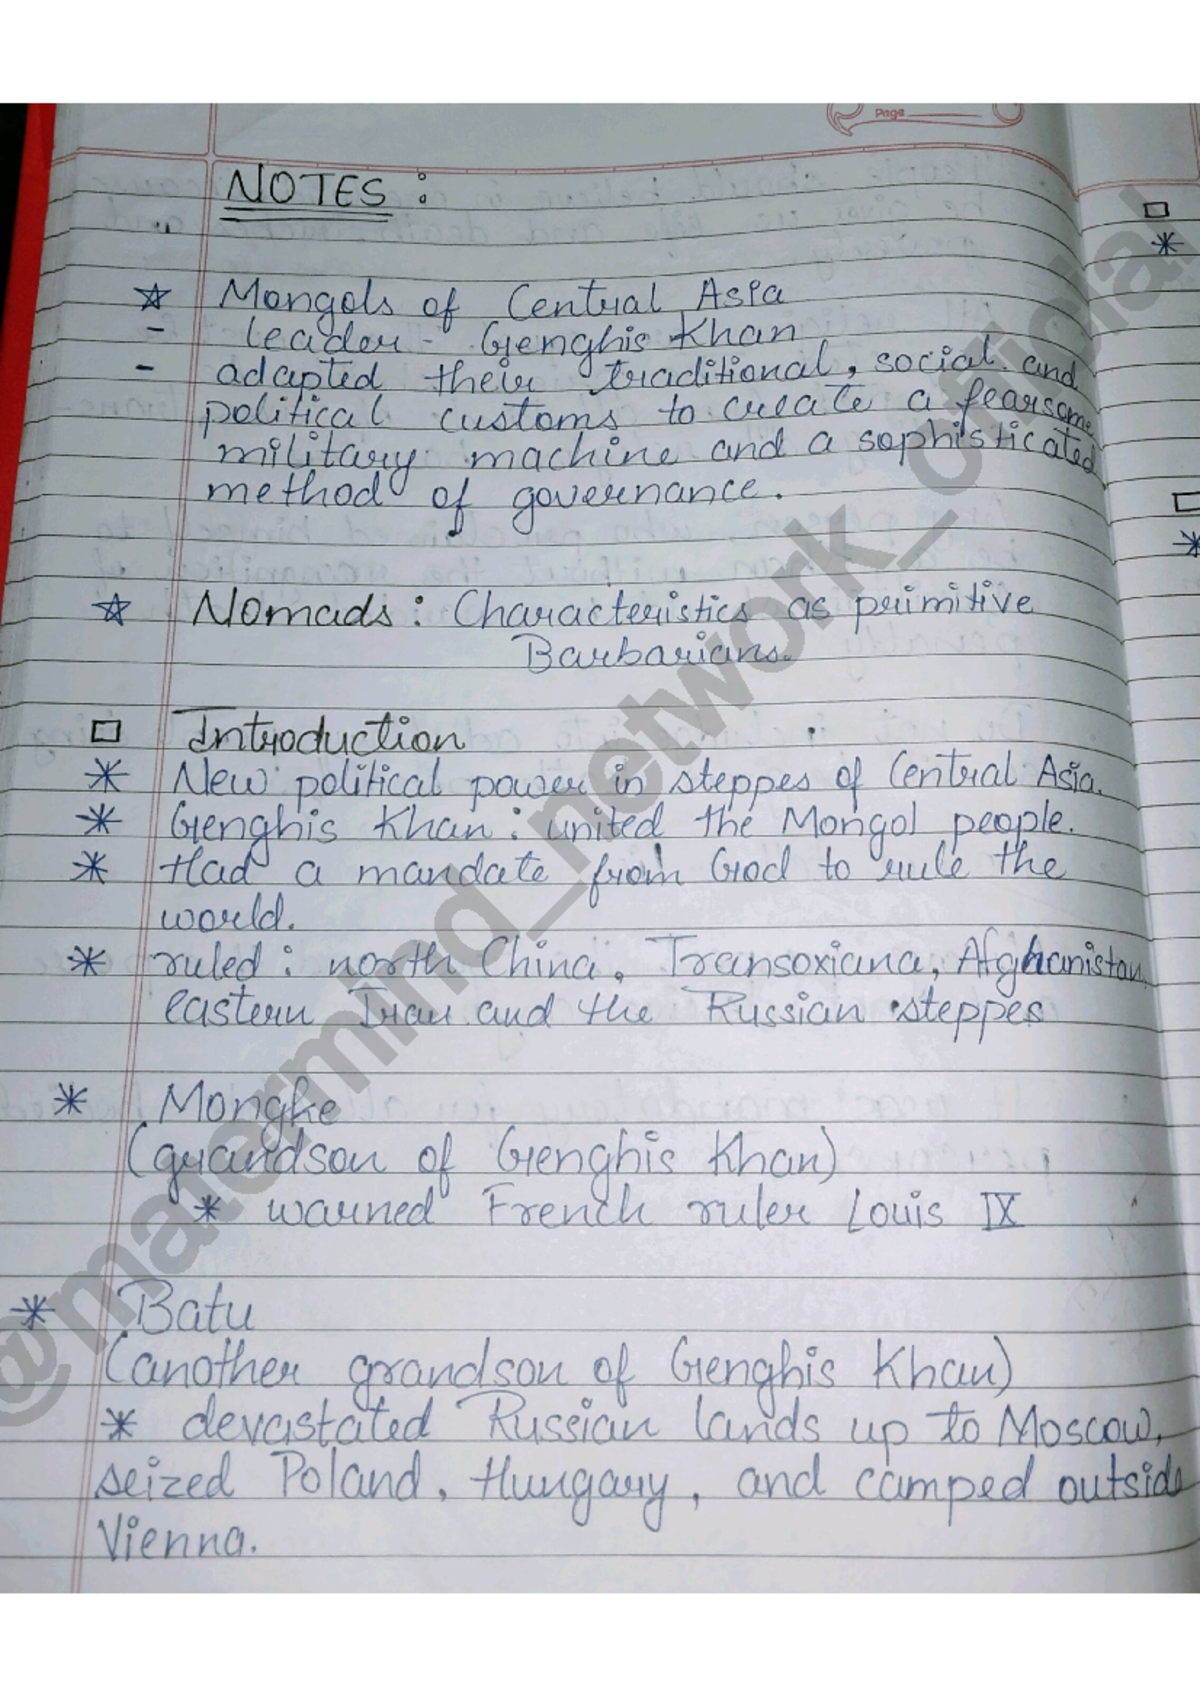 Page
NOTES :
Mongols of Central Asia
- leader - Genghis Khan
- adapted their traditional, social and
political customs to create a fearsome
military machine and a sophisticated
method of governance.
Nomads : Characteristics as primitive
Barbarians.
Introduction
* New political power in steppes of Central Asia.
* Genghis Khan : united the Mongol people.
* Had a mandate from God to rule the
world.
* ruled : north China, Transoxiana, Afghanistan,
eastern Iran and the Russian steppes
* Mongke
(grandson of Genghis Khan)
* warned French ruler Louis IX
* Batu
(another grandson of Genghis Khan)
* devastated Russian lands up to Moscow,
seized Poland, Hungary, and camped outside
Vienna.
@matermind_network_official